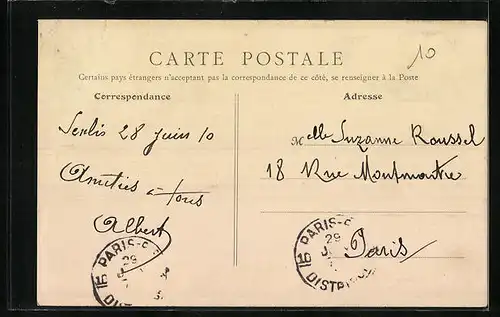 CARTE POSTALE
10
Certains pays étrangers n'acceptant pas la correspondance de ce côté, se renseigner à la Poste
Correspondance
Senlis 28 juin 10
Amitiés à tous
Albert
Adresse
Melle Suzanne Roussel
18 Rue Montmartre
Paris
PARIS
29
15
DISTRIBUTION
PARIS
29
15